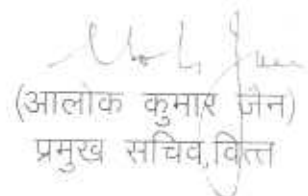 (आलोक कुमार जैन)
प्रमुख सचिव,वित्त